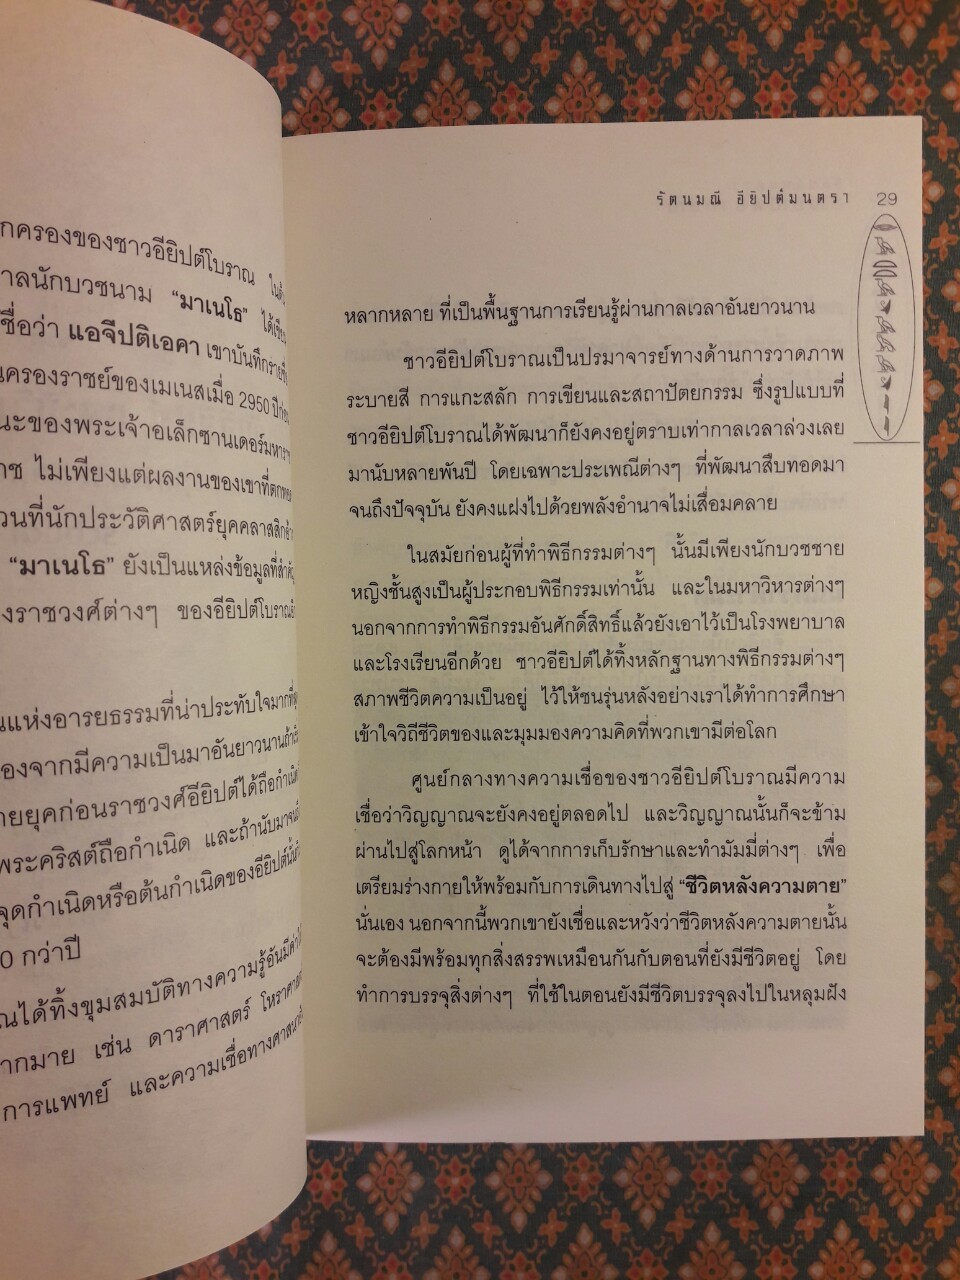 กครองของชาวอียิปต์โบราณ ในต้น
าลนักบวชนาม “มาเนโธ” ได้เขียน
ชื่อว่า แอจีปติเอคา เขาบันทึกรายชื่อ
นครองราชย์ของเมเนสเมื่อ 2950 ปีก่อน
นะของพระเจ้าอเล็กซานเดอร์มหาราช
ไม่เพียงแต่ผลงานของเขาที่ตกทอด
วนที่นักประวัติศาสตร์ยุคคลาสสิกอ้าง
“มาเนโธ” ยังเป็นแหล่งข้อมูลที่สำคัญ
งราชวงศ์ต่างๆ ของอียิปต์โบราณ
นแห่งอารยธรรมที่น่าประทับใจมากที่สุด
องจากมีความเป็นมาอันยาวนานถ้า
ายยุคก่อนราชวงศ์อียิปต์ได้ถือกำเนิด
พระคริสต์ถือกำเนิด และถ้านับมาจน
จุดกำเนิดหรือต้นกำเนิดของอียิปต์นั้น
0 กว่าปี
ณได้ทิ้งขุมสมบัติทางความรู้อันมีค่า
ากมาย เช่น ดาราศาสตร์ โหราศาสตร์
การแพทย์ และความเชื่อทางศาสนา
รัตนมณี อียิปต์มนตรา 29
หลากหลาย ที่เป็นพื้นฐานการเรียนรู้ผ่านกาลเวลาอันยาวนาน
ชาวอียิปต์โบราณเป็นปรมาจารย์ทางด้านการวาดภาพ
ระบายสี การแกะสลัก การเขียนและสถาปัตยกรรม ซึ่งรูปแบบที่
ชาวอียิปต์โบราณได้พัฒนาก็ยังคงอยู่ตราบเท่ากาลเวลาล่วงเลย
มานับหลายพันปี โดยเฉพาะประเพณีต่างๆ ที่พัฒนาสืบทอดมา
จนถึงปัจจุบัน ยังคงแฝงไปด้วยพลังอำนาจไม่เสื่อมคลาย
ในสมัยก่อนผู้ที่ทำพิธีกรรมต่างๆ นั้นมีเพียงนักบวชชาย
หญิงชั้นสูงเป็นผู้ประกอบพิธีกรรมเท่านั้น และในมหาวิหารต่างๆ
นอกจากการทำพิธีกรรมอันศักดิ์สิทธิ์แล้วยังเอาไว้เป็นโรงพยาบาล
และโรงเรียนอีกด้วย ชาวอียิปต์ได้ทิ้งหลักฐานทางพิธีกรรมต่างๆ
สภาพชีวิตความเป็นอยู่ ไว้ให้ชนรุ่นหลังอย่างเราได้ทำการศึกษา
เข้าใจวิถีชีวิตของและมุมมองความคิดที่พวกเขามีต่อโลก
ศูนย์กลางทางความเชื่อของชาวอียิปต์โบราณมีความ
เชื่อว่าวิญญาณจะยังคงอยู่ตลอดไป และวิญญาณนั้นก็จะข้าม
ผ่านไปสู่โลกหน้า ดูได้จากการเก็บรักษาและทำมัมมี่ต่างๆ เพื่อ
เตรียมร่างกายให้พร้อมกับการเดินทางไปสู่ “ชีวิตหลังความตาย”
นั่นเอง นอกจากนี้พวกเขายังเชื่อและหวังว่าชีวิตหลังความตายนั้น
จะต้องมีพร้อมทุกสิ่งสรรพเหมือนกันกับตอนที่ยังมีชีวิตอยู่ โดย
ทำการบรรจุสิ่งต่างๆ ที่ใช้ในตอนยังมีชีวิตบรรจุลงไปในหลุมฝัง